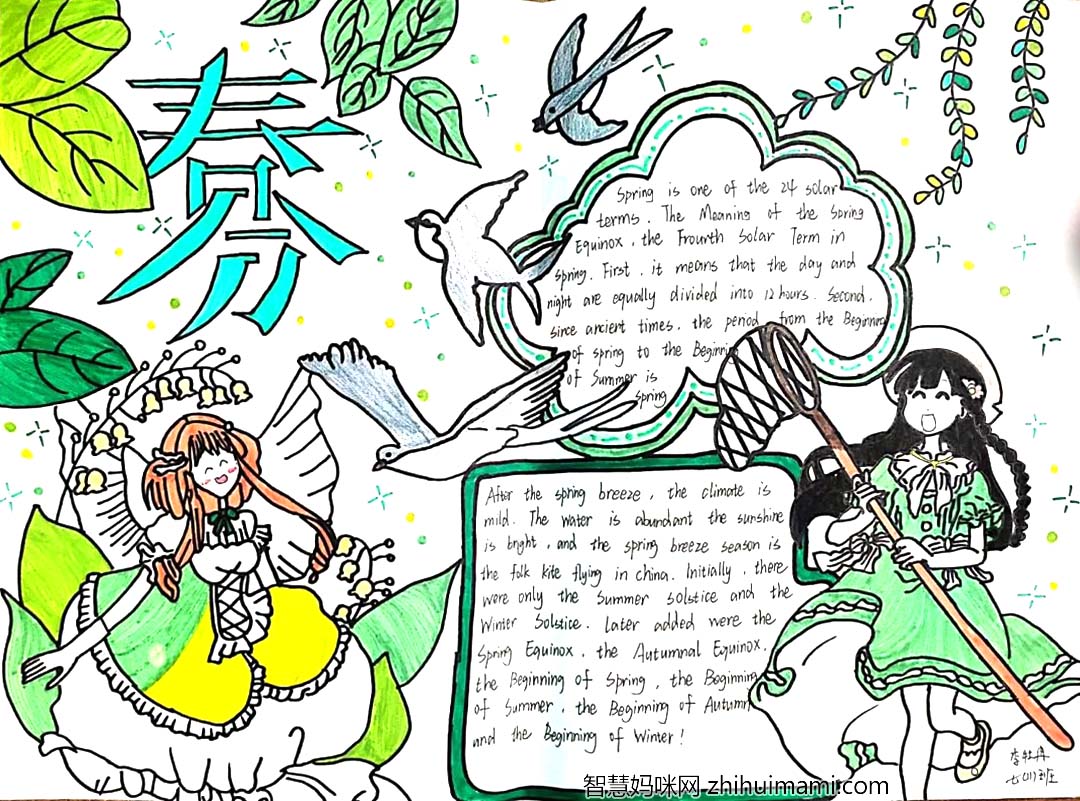 春分
Spring is one of the 24 solar
terms. The Meaning of the Spring
Equinox, the Frourth Solar Term in
spring. First, it means that the day and
night are equally divided into 12 hours. Second,
since ancient times, the period from the Beginning
of spring to the Beginning
of Summer is
spring
After the spring breeze, the climate is
mild. The water is abundant the sunshine
is bright, and the spring breeze season is
the folk kite flying in china. Initially, there
were only the Summer solstice and the
Winter Solstice. Later added were the
Spring Equinox, the Autumnal Equinox,
the Beginning of Spring, the Beginning
of Summer, the Beginning of Autumn
and the Beginning of Winter!
李牡丹
七(1)班
智慧妈咪网 zhihuimami.com